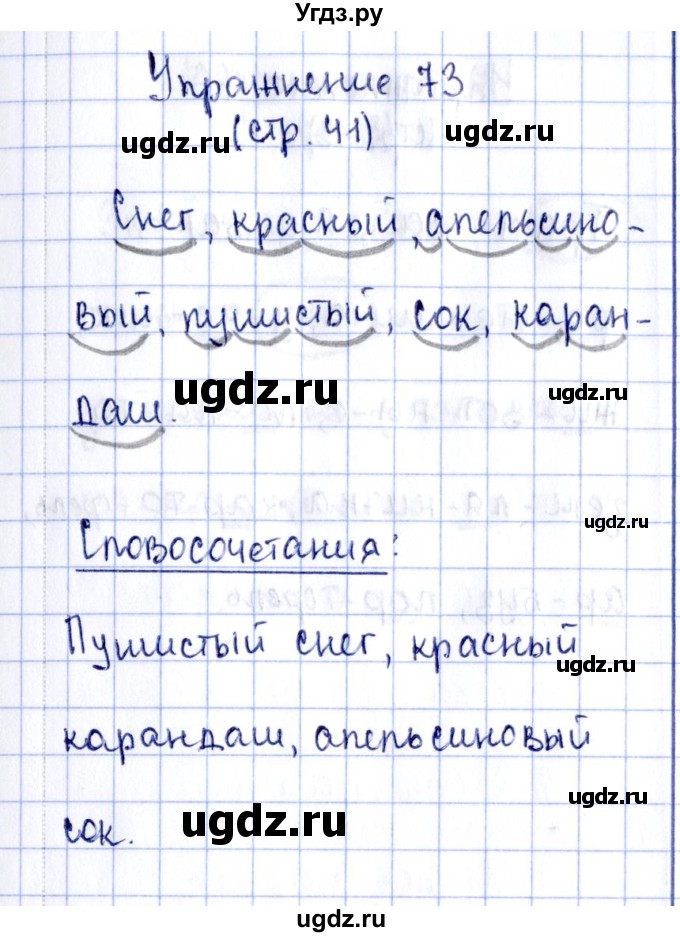 Угдз.ру
Упражнение 73
ugdz.ru (стр. 41) ugdz.ru
Снег, красный, апельсино-
вый, пушистый, сок, каран-
ugdz.ru ugdz.ru
даш.
ugdz.ru
Словосочетания:
Пушистый снег, красный
ugdz.ru
карандаш, апельсиновый
ugdz.ru
сок. ugdz.ru
ugdz.ru